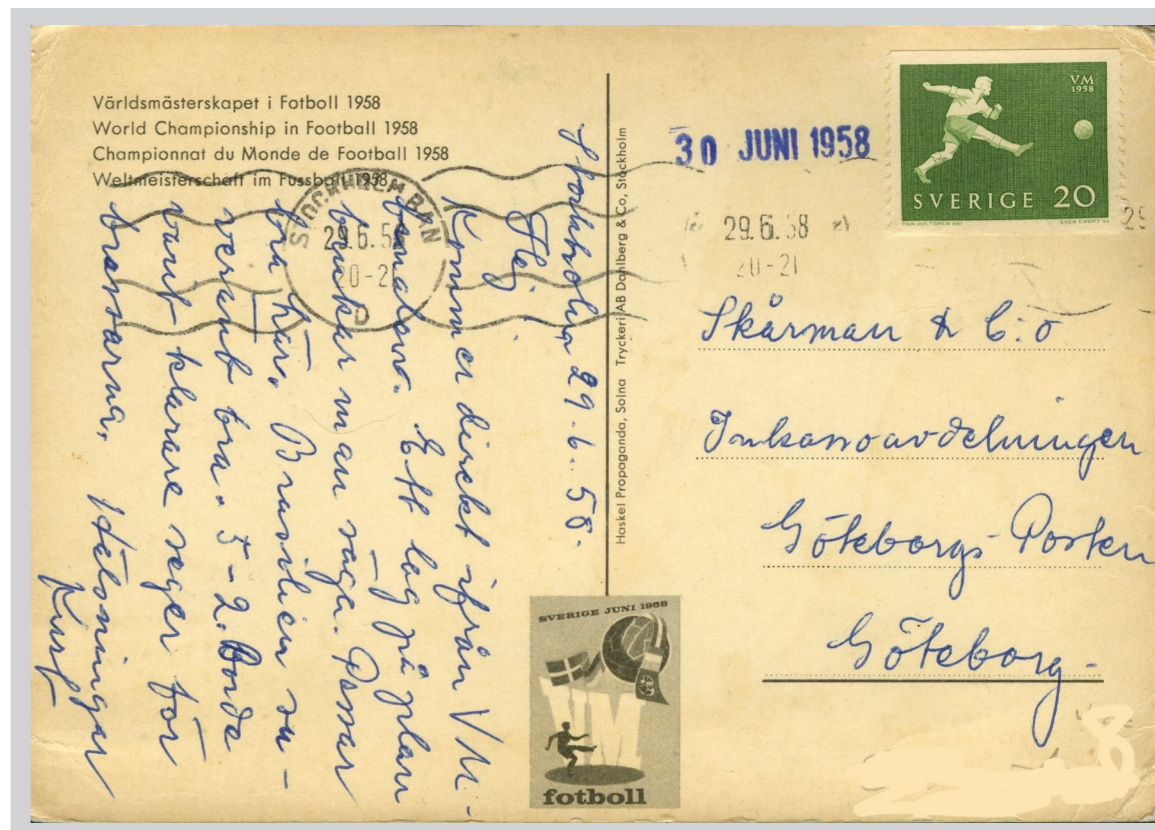 Världsmästerskapet i Fotboll 1958
World Championship in Football 1958
Championnat du Monde de Football 1958
Weltmeisterschaft im Fussball 1958
Stockholm 29.6.58.
Hej
Kommer direkt ifrån VM-
finalen. Ett lag på plan
brukar man säga. Passar
bra här. Brasilien su-
veränt bra. 5-2. Borde
varit klarare seger för
brassarna. Hälsningar
Kurt
Haskel Propaganda, Solna Tryckeri AB Dahlberg & Co, Stockholm
30 JUNI 1958
VM
1958
SVERIGE 20
STOCKHOLM BAN
29.6.58
20-2
D
29.6.58
20-21
29
Skårman & C:o
Inkassoavdelningen
Göteborgs-Posten
Göteborg-
SVERIGE JUNI 1958
VM
fotboll
8